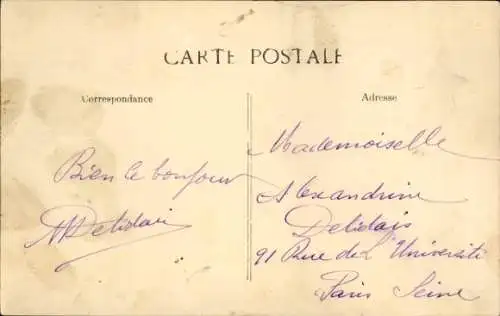 CARTE POSTALE
Correspondance
Adresse
Bien le bonjour
Mademoiselle
Alexandrine
Delidais
91 Rue de l'Université
Paris Seine